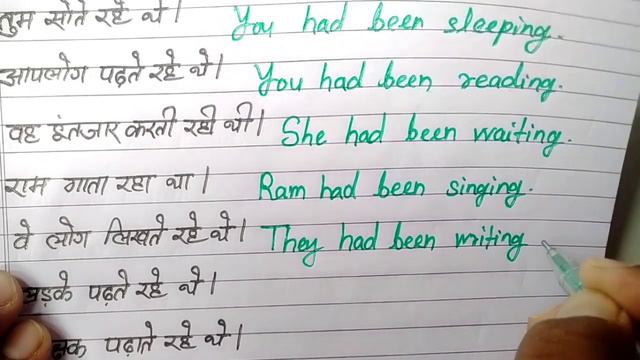 तुम सोते रहे थे। You had been sleeping.
आपलोग पढ़ते रहे थे। You had been reading.
वह इंतजार करती रही थी। She had been waiting.
राम गाता रहा था। Ram had been singing.
वे लोग लिखते रहे थे। They had been writing
पढ़ते रहे थे।
पढ़ाते रहे थे।